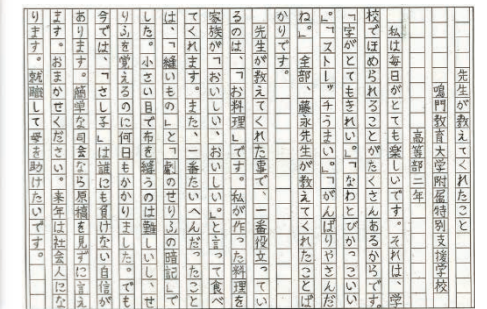 先生が教えてくれたこと
鳴門教育大学附属特別支援学校
高等部三年
私は毎日がとても楽しいです。それは、学
校でほめられることがたくさんあるからです。
「字がとてもきれい。」「なわとびかっこいい
。」「ストレッチうまい。」「がんばりやさんだ
ね。」全部、藤永先生が教えてくれたことば
かりです。
先生が教えてくれた事で、一番役立ってい
るのは、「お料理」です。私が作った料理を
家族が「おいしい、おいしい。」と言って食べ
てくれます。また、一番たいへんだったこと
は、「縫いもの」と「劇のせりふの暗記」で
した。小さい目で布を縫うのは難しいし、せ
りふを覚えるのに何日もかかりました。でも
今では、「さし子」は誰にも負けない自信が
あります。簡単な司会なら原稿を見ずに言え
ます。おまかせください。来年は社会人にな
ります。就職して母を助けたいです。